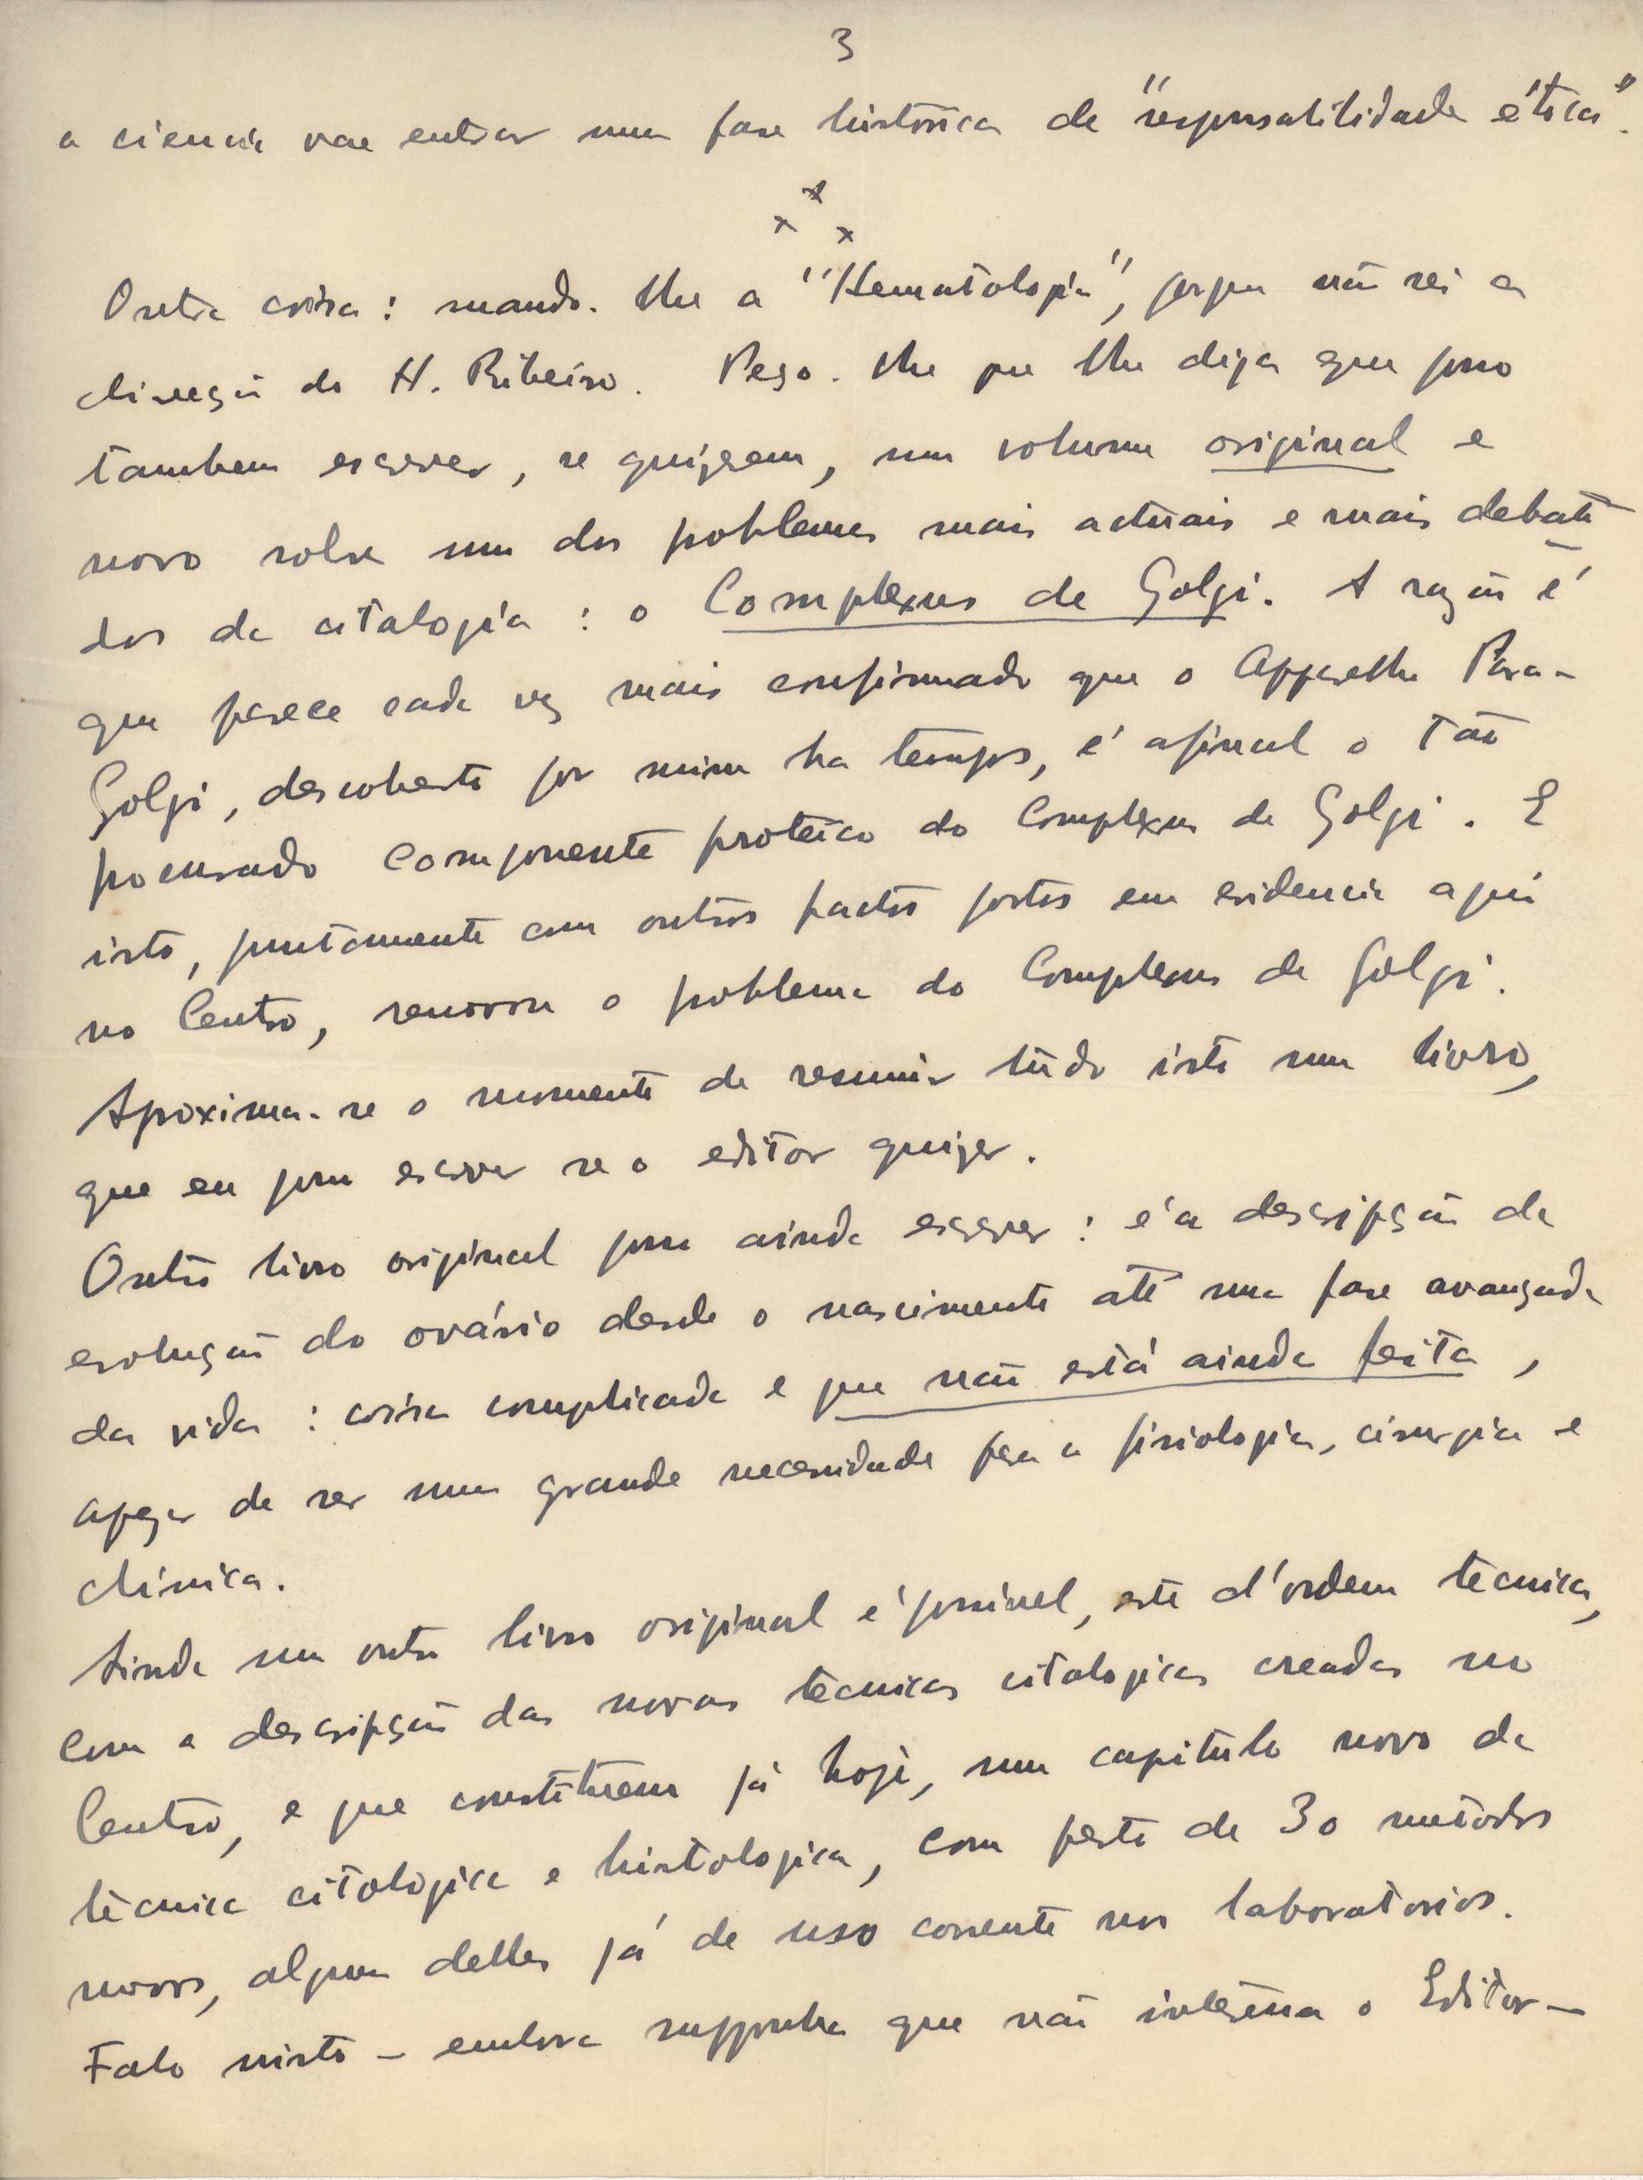 3
a ciencia vae entrar numa fase historica de "responsabilidade ética".
x x x
Outra coisa: mando-lhe a "Hematologia", porque não sei a
direcção do H. Ribeiro. Peço-lhe que lhe diga que posso
tambem escrever, se quizerem, um volume original e
novo sobre um dos problemas mais actuais e mais debati-
dos da citologia: o Complexus de Golgi. A razão é
que parece cada vez mais confirmado que o Apparelho Para-
Golgi, descoberto por mim ha tempos, é afinal o tão
procurado componente proteico do Complexus de Golgi. E
isto, juntamente com outros factos postos em evidencia aqui
no Centro, renovou o problema do Complexus de Golgi.
Aproxima-se o momento de resumir tudo isto num livro,
que eu posso escrever se o editor quizer.
Outro livro original posso ainda escrever: é a descripção da
evolução do ovário desde o nascimento até uma fase avançada
da vida: coisa complicada e que não está ainda feita,
apezar de ser uma grande necessidade para a fisiologia, cirurgia e
clinica.
Ainda um outro livro original é possivel, este d'ordem tecnica,
com a descripção das novas tecnicas citologicas creadas no
Centro, e que constituem já hoje, um capitulo novo da
tecnica citologica e histologica, com perto de 30 metodos
novos, alguns delles já de uso corrente nos laboratorios.
Falo nisto - embora supponha que não interessa o Editor -